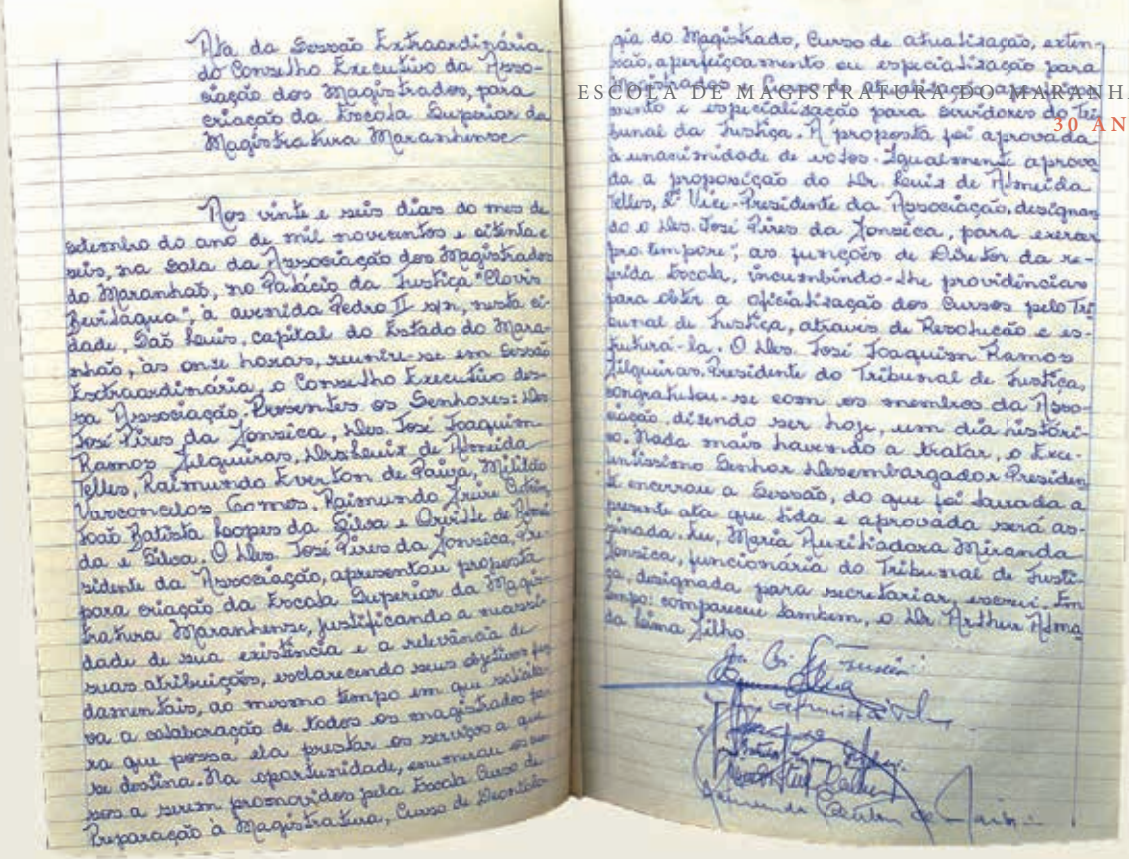 Ata da Sessão Extraordinária,
do Conselho Executivo da Asso-
ciação dos Magistrados, para
criação da Escola Superior da
Magistratura Maranhense
Aos vinte e seis dias do mes de
setembro do ano de mil novecentos e oitenta e
seis, na Sala da Associação dos Magistrados
do Maranhão, no Palácio da Justiça "Clovis
Bevilaqua", à avenida Pedro II s/n, nesta ci-
dade, São Luis, capital do Estado do Mara-
nhão, às onze horas, reuniu-se em Sessão
Extraordinária, o Conselho Executivo des-
sa Associação. Presentes os Senhores: Des
José Pires da Fonseca, Des. José Joaquim
Ramos Filgueiras, Drs Luiz de Almeida
Telles, Raimundo Everton de Paiva, Milildo
Vasconcelos Gomes, Raimundo Freire Cutrim,
João Batista Loopes da Silva e Orville de Almei
da e Silva. O Des. José Pires da Fonseca, Pre-
sidente da Associação, apresentou proposta
para criação da Escola Superior da Magis-
tratura Maranhense, justificando a necessi-
dade de sua existência e a relevância de
suas atribuições, esclarecendo seus objetivos fun
damentais, ao mesmo tempo em que solicita-
va a colaboração de todos os magistrados pa-
ra que possa ela prestar os serviços a que
se destina. Na oportunidade, enumerou os cur
sos a serem promovidos pela Escola Curso de
Preparação à Magistratura, Curso de Deontolo-
gia do Magistrado, Curso de atualização, exten-
são, aperfeiçoamento ou especialização para
ESCOLA DE MAGISTRATURA DO MARANH
Magistrados
mento e especialização para servidores do Tri
30 AN
bunal da Justiça. A proposta foi aprovada
à unanimidade de votos. Igualmente aprova
da a proposição do Dr. Luiz de Almeida
Telles, 2º Vice-Presidente da Associação, designan
do o Des. José Pires da Fonseca, para exercer
pro tempore", as funções de Diretor da re-
ferida Escola, incumbindo-lhe providências
para obter a oficialização dos Cursos pelo Tri
bunal de Justiça, através de Resolução e es-
truturá-la. O Des. José Joaquim Ramos
Filgueiras, Presidente do Tribunal de Justiça,
congratulou-se com os membros da Asso-
ciação, dizendo ser hoje, um dia históri-
co. Nada mais havendo a tratar, o Exce-
lentissimo Senhor Desembargador Presiden
te encerrou a Sessão, do que foi lavrada a
presente ata que lida e aprovada será as-
sinada. Eu, Maria Auxiliadora Miranda
Fonseca, funcionária do Tribunal de Justi-
ça, designada para secretariar, escrevi. Em
tempo: compareceu tambem, o Dr. Arthur Alma
da Lima Filho